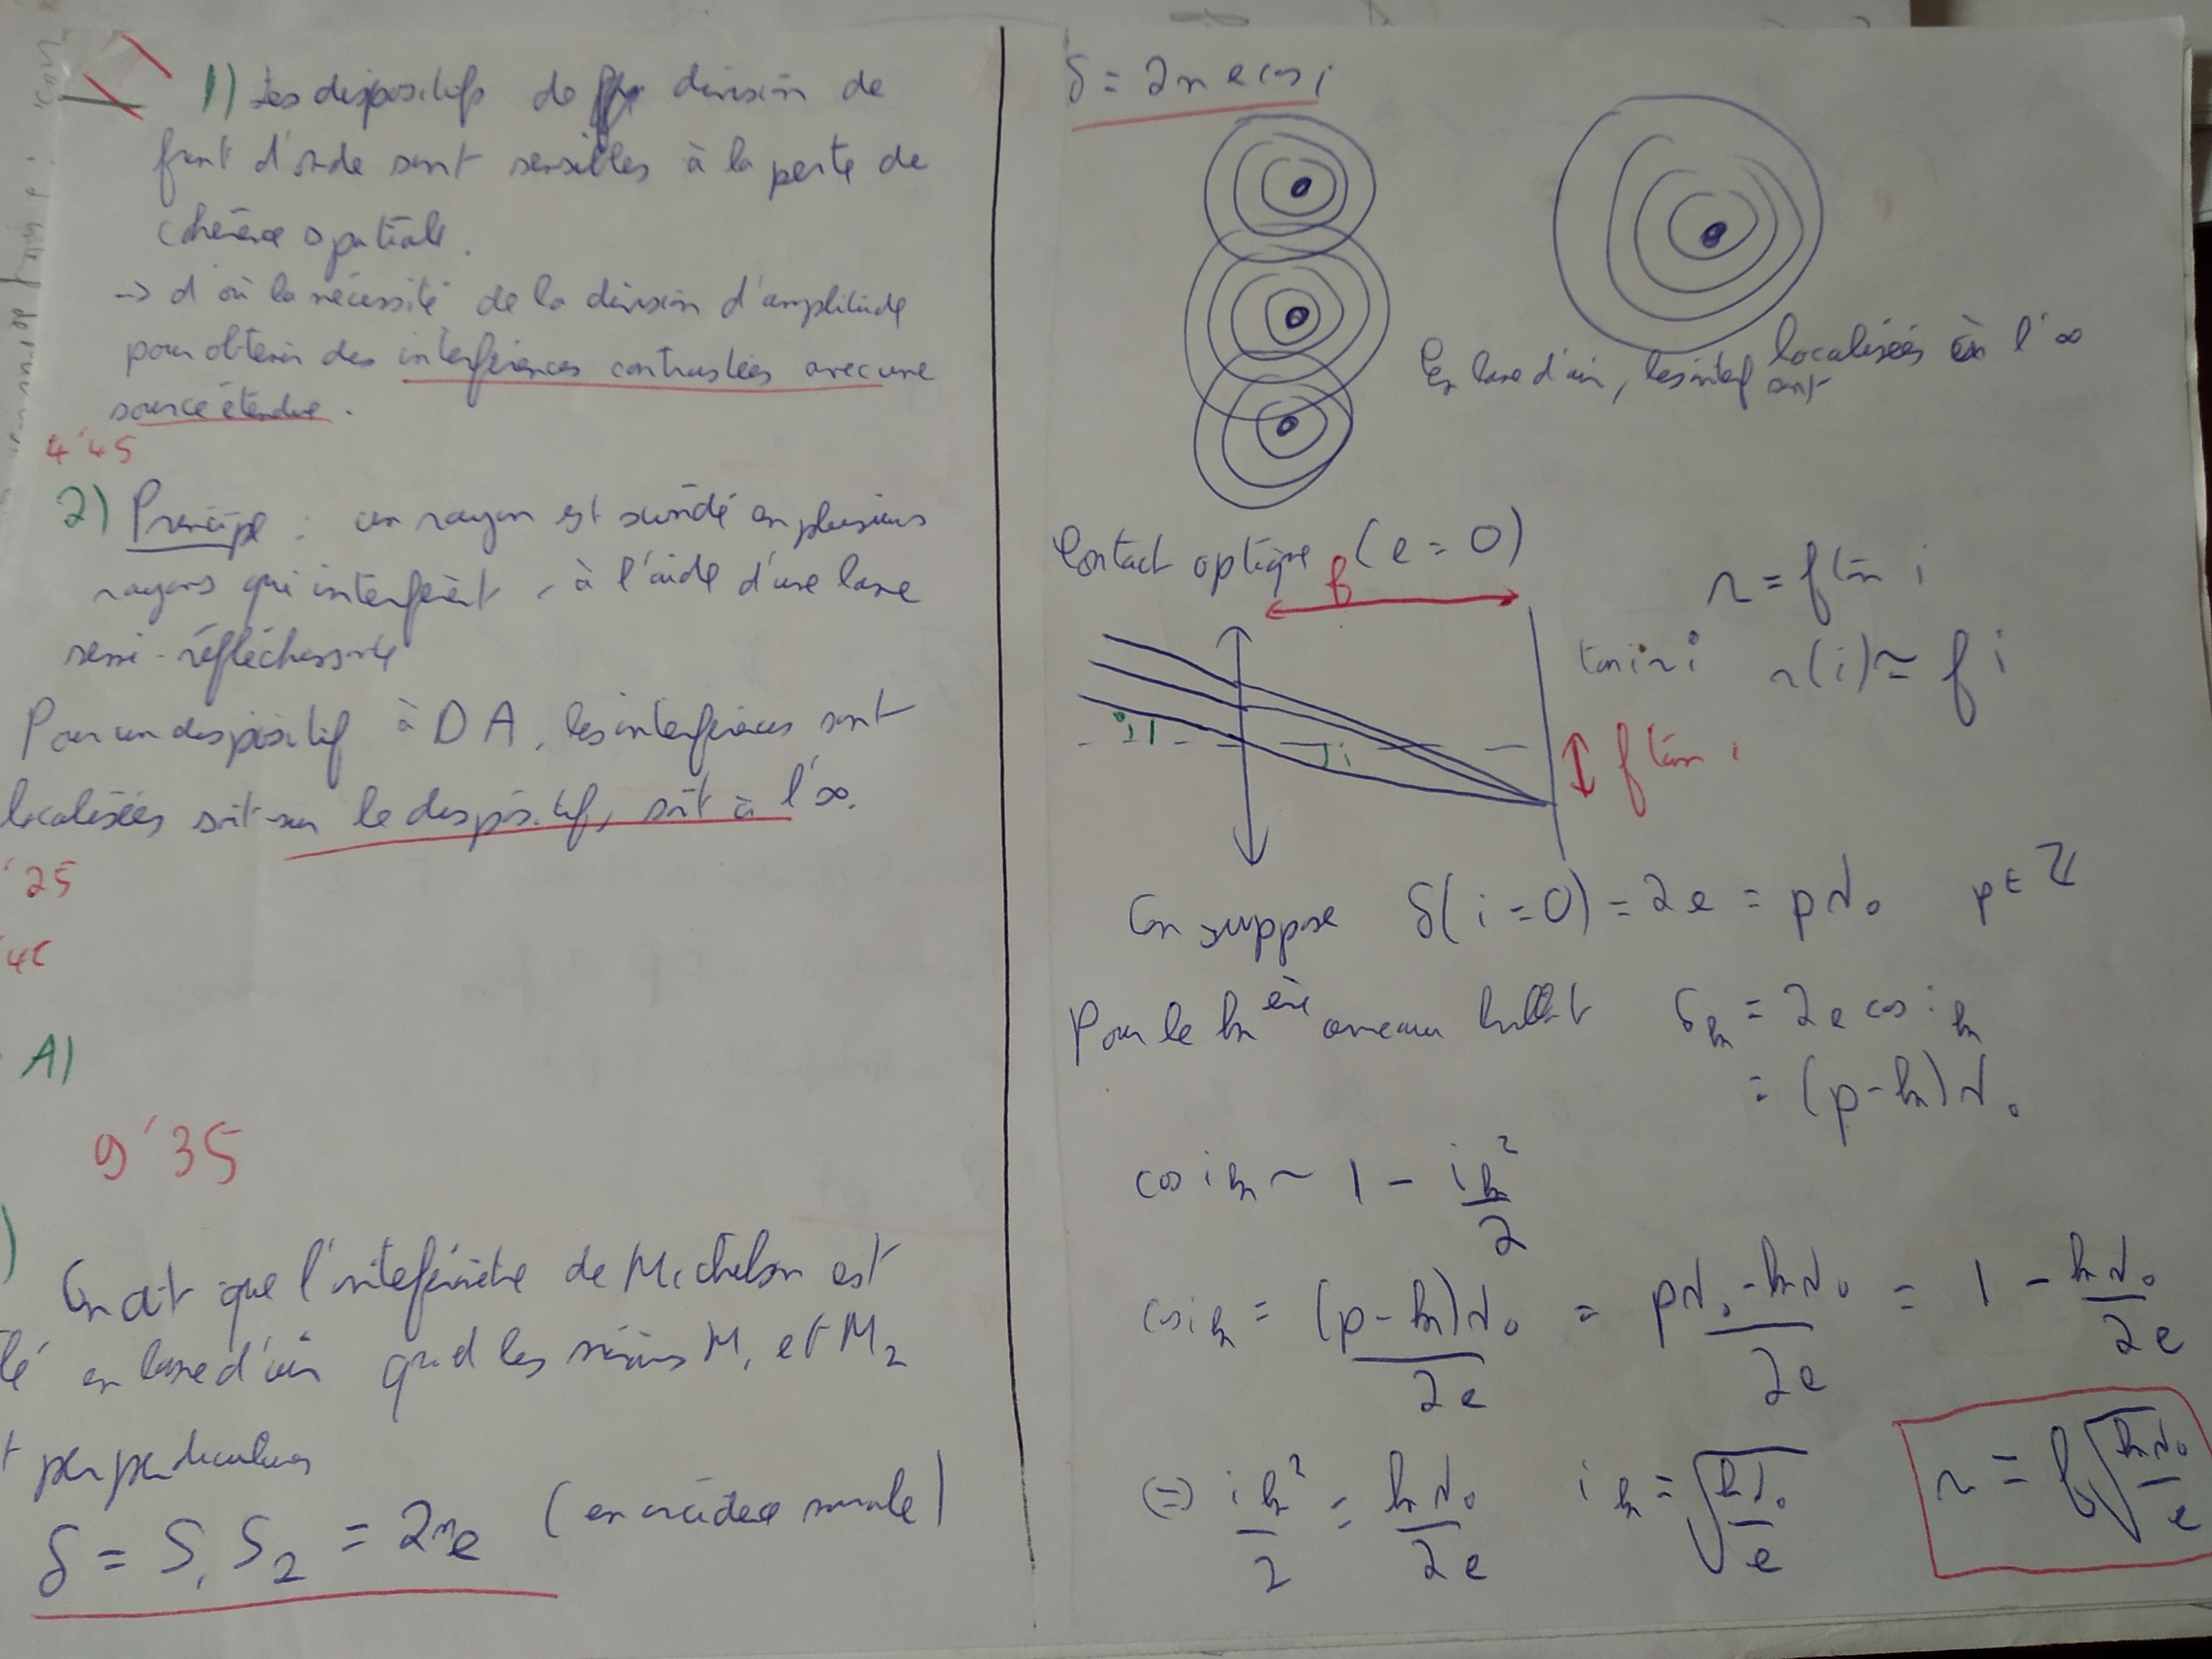 1) Les dispositifs de division de
front d'onde sont sensibles à la perte de
cohérence spatiale.
-> d'où la nécessité de la division d'amplitude
pour obtenir des interférences contrastées avec une
source étendue.
4'45
2) Principe : un rayon est scindé en plusieurs
rayons qui interfèrent, à l'aide d'une lame
semi-réfléchissante
Pour un dispositif à DA, les interférences sont
localisées soit sur le dispositif, soit à l'∞.
'25
A)
9'35
On dit que l'interféromètre de Michelson est
lé en lame d'air quand les miroirs M1 et M2
t perpendiculaires
δ = S1S2 = 2ne (en incidence normale)
δ = 2ne cos i
En lame d'air, les interf sont localisées à l'∞
Contact optique (e = 0)
f
r = f tan i
tan i ~ i r(i) ≈ f i
i
i
f tan i
On suppose δ(i = 0) = 2e = pλ0 p ∈ ℤ
Pour le kème anneau brillant δk = 2e cos ik
= (p-k)λ0
cos ik ~ 1 - ik²/2
cos ik = (p-k)λ0/2e = pλ0-kλ0/2e = 1 - kλ0/2e
(=) ik²/2 = kλ0/2e ik = √kλ0/e r = f√kλ0/e